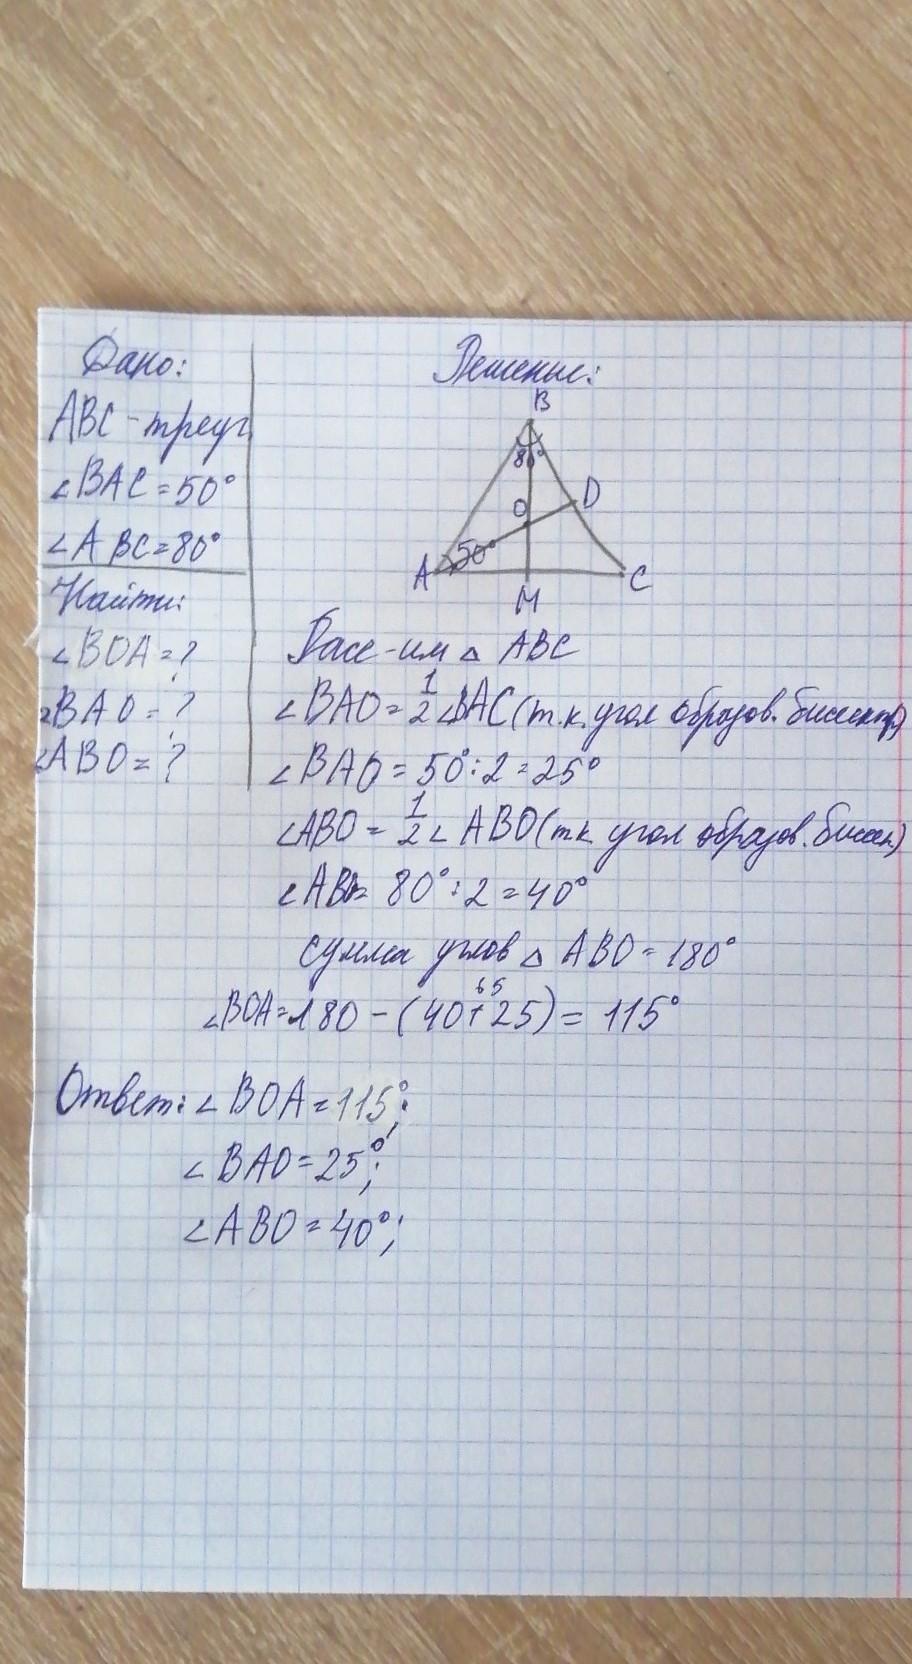 Дано:
ABC - треуг
∠BAC = 50°
∠ABC = 80°
Найти:
∠BOA = ?
∠BAO = ?
∠ABO = ?
Решение:
B
80°
O
D
A
50°
C
M
Расс-им △ ABC
∠BAO = 1/2 ∠BAC (т.к. угол образов. биссектр.)
∠BAO = 50° : 2 = 25°
∠ABO = 1/2 ∠ABO (тк угол образов. биссек.)
= 80° : 2 = 40°
сумма углов △ ABO = 180°
65
∠BOA = 180 - (40 + 25) = 115°
Ответ: ∠BOA = 115°;
∠BAO = 25°;
∠ABO = 40°;